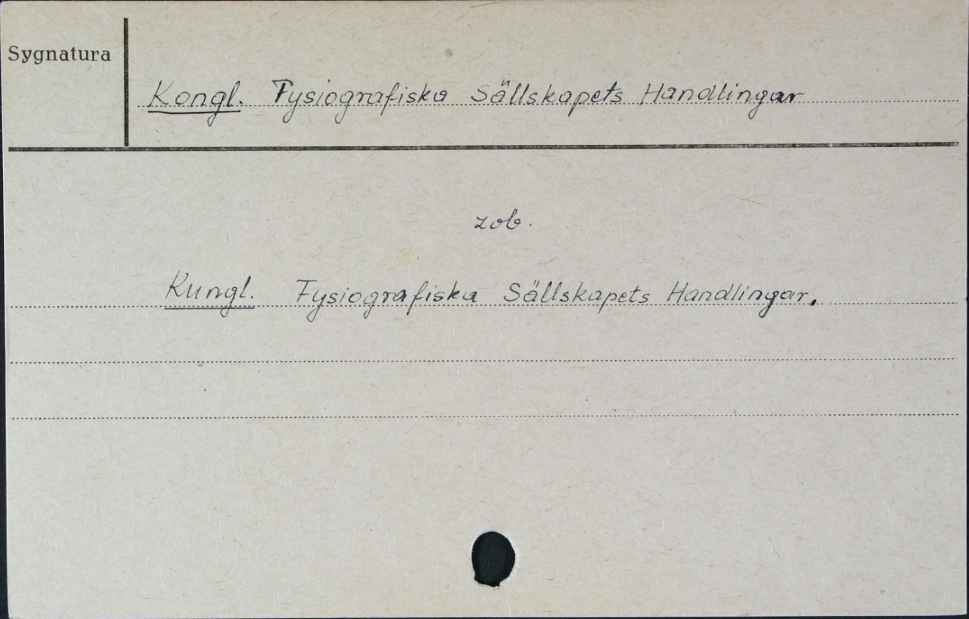 Sygnatura
Kongl. Fysiografiska Sällskapets Handlingar
zob.
Kungl. Fysiografiska Sällskapets Handlingar.